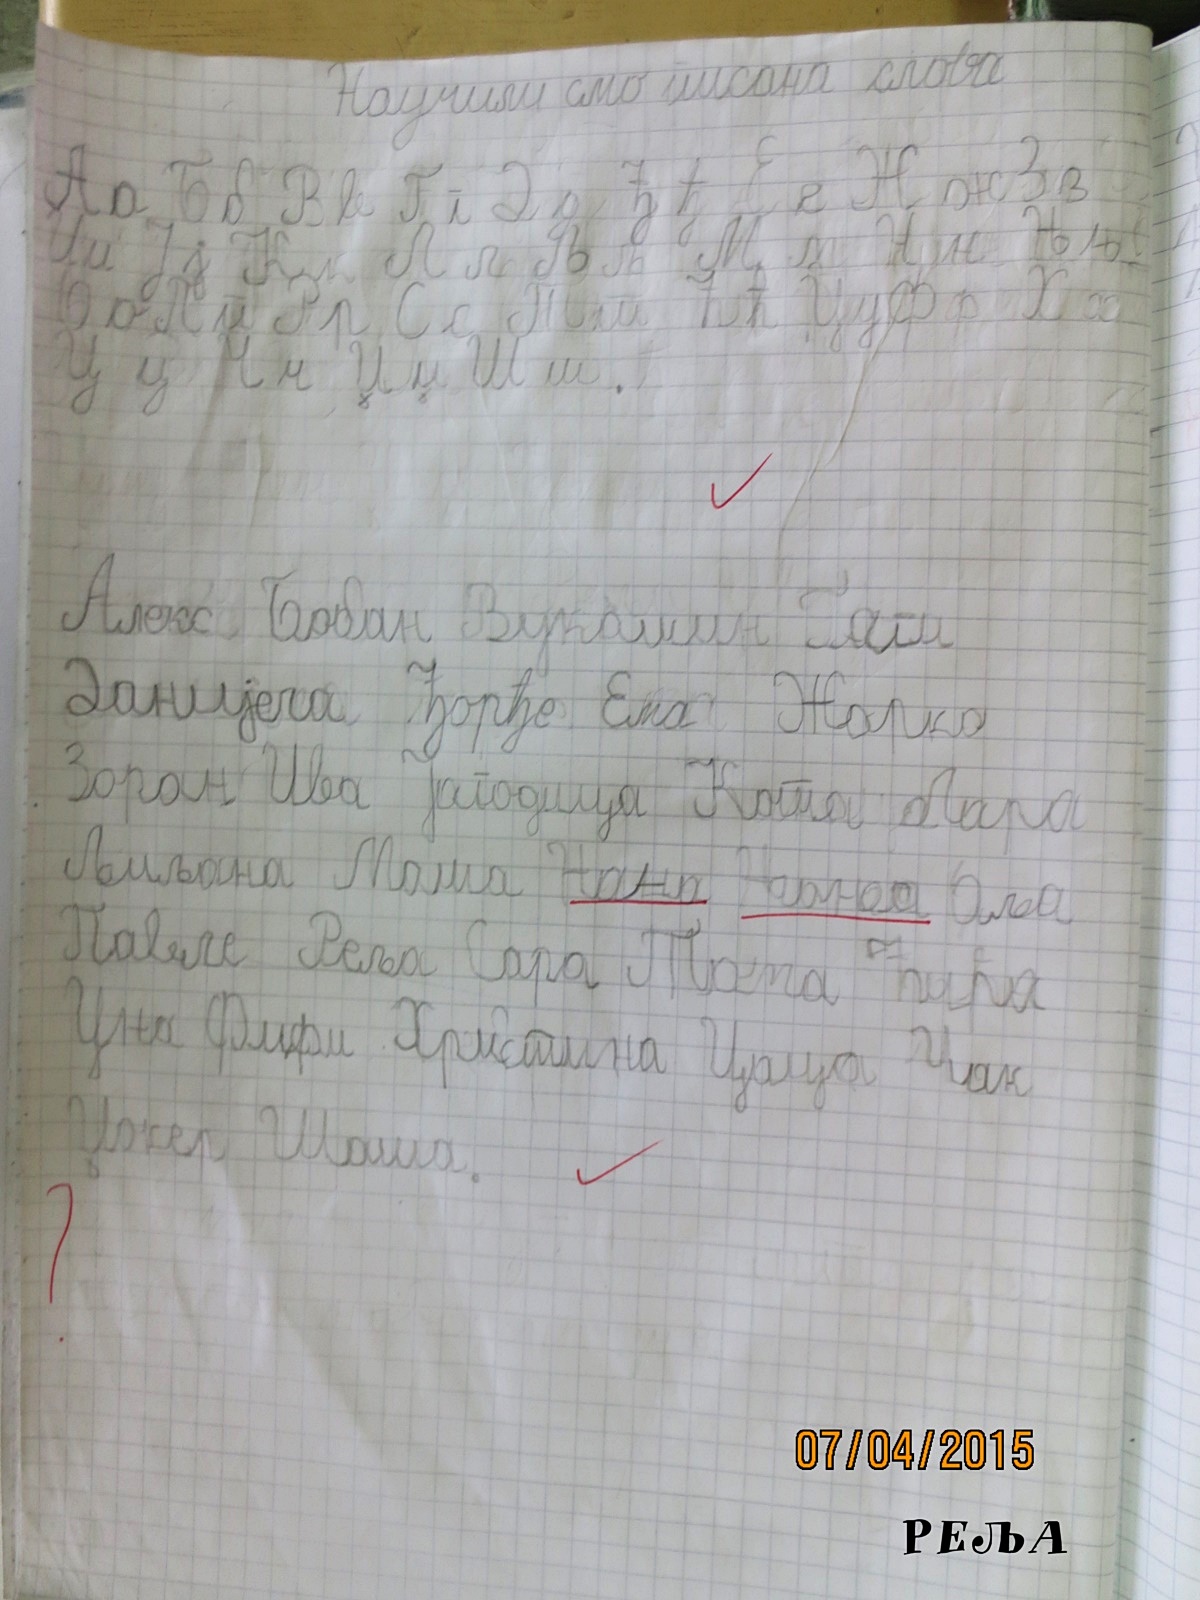 Научили смо писана слова
Аа Бб Вв Гг Дд Ђђ Ее Жж Зз
Ии Јј Кк Лл Љљ Мм Нн Њњ
Оо Пп Рр Сс Тт Ћћ Уу Фф Хх
Цц Чч Џџ Шш.
Алекс Бобан Вукашин Гати
Данијела Ђорђе Ема Жарко
Зоран Ива Јагодица Ката Лара
Љиљана Маша Нана Оља
Павле Реља Сара Ћира
Уна Фифи Христина Цаца Чак
Џокер Шаша.
07/04/2015
РЕЉА